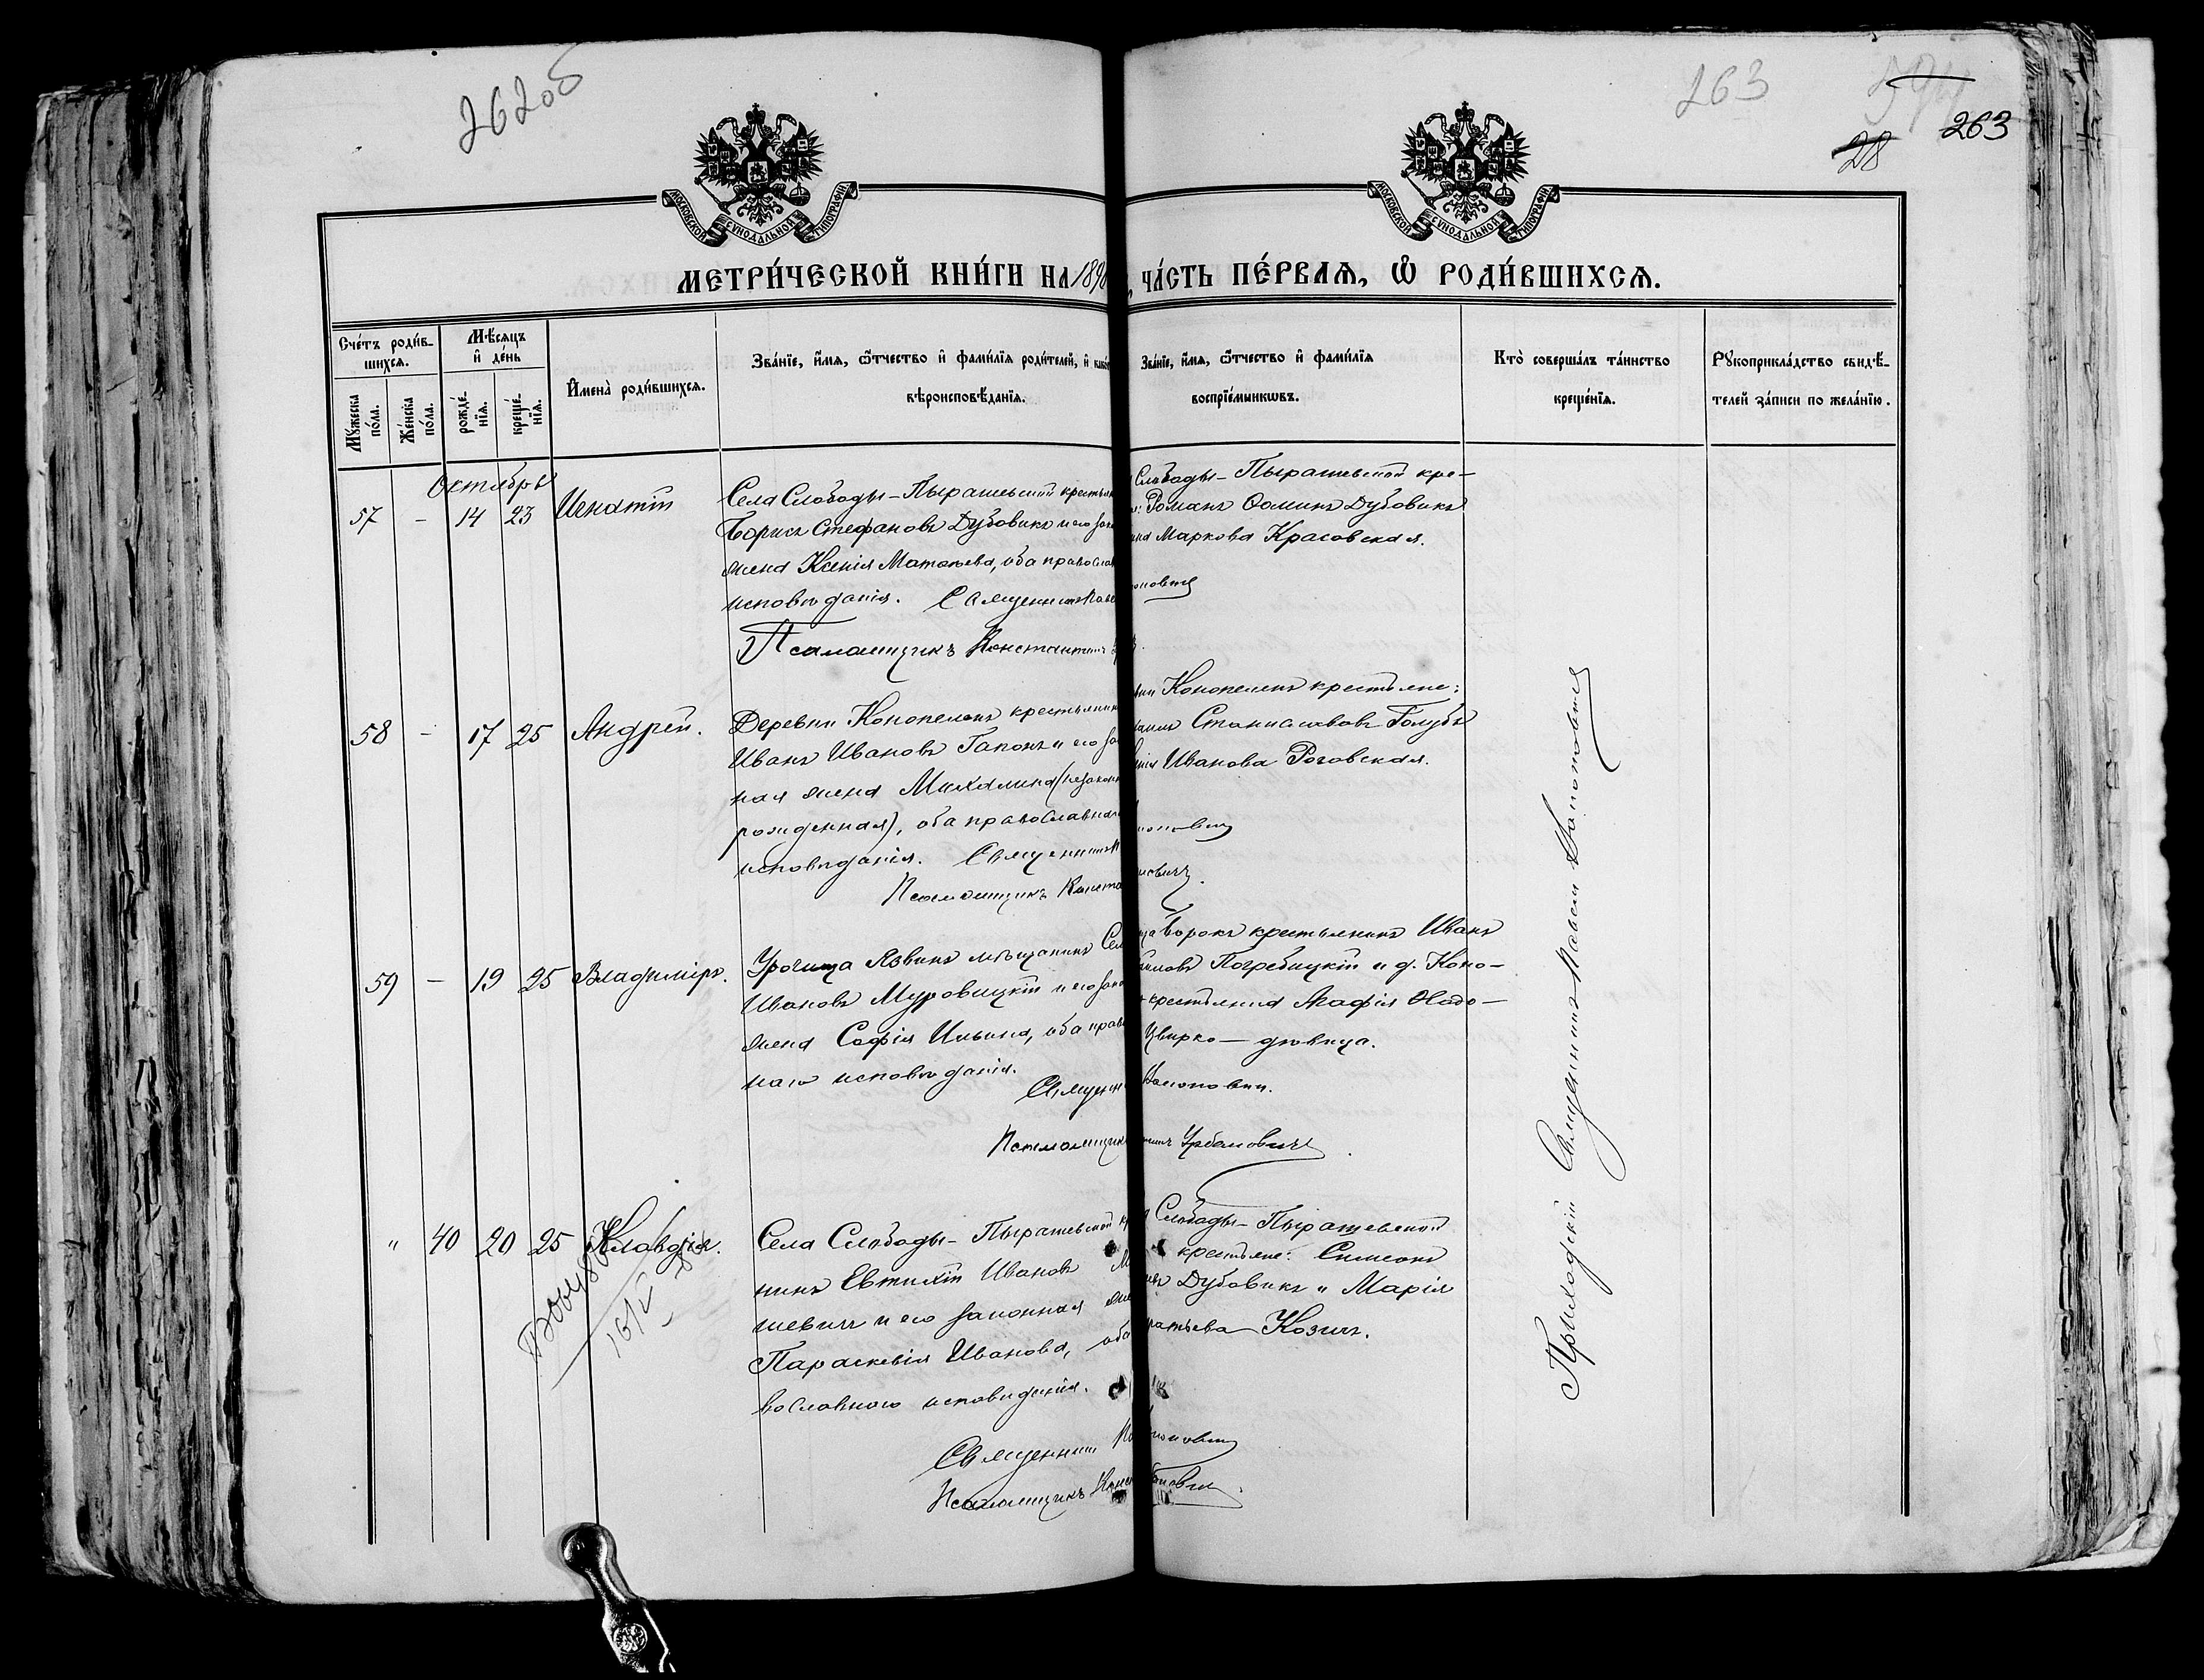 262об
263
28
263
МОСКОВСКОЙ СѴНОДАЛЬНОЙ ТИПОГРАФІИ
МОСКОВСКОЙ СѴНОДАЛЬНОЙ ТИПОГРАФІИ
МЕТРИ́ЧЕСКОЙ КНИ́ГИ НА 189
, ЧА́СТЬ ПЕ́РВАѦ, Ѡ҆ РОДИ́ВШИХСѦ.
Сче́тъ роди́в-
шихсѧ.
Мꙋ́жеска по́ла.
Же́нска по́ла.
Мѣ́сѧцъ и҆ де́нь
рожде́-нїѧ.
креще́-нїѧ.
И҆мена̀ роди́вшихсѧ.
Зва́нїе, и҆́мѧ, ѻ҆́тчество и҆ фами́лїѧ роди́телей, и҆
вѣроисповѣ́данїѧ.
Зва́нїе, и҆́мѧ, ѻ҆́тчество и҆ фами́лїѧ
воспрїе́мникѡвъ.
Кто̀ соверша́лъ та́инство
креще́нїѧ.
Рꙋкоприкла́дство свидѣ́-
телей за́писи по жела́нїю.
Октябрь
57 - 14 23 Игнатій
Села Слободы-Пырашевской крестьян
Борисъ Стефановъ Дубовикъ и его зак
жена Ксенія Матѳѣева, оба православ
исповѣданія. Священникъ Паве
Псаломщикъ Константинъ
Слободы-Пырашевской кре-
Романъ Ѳоминъ Дубовикъ
Маркова Красовская.
58 - 17 25 Андрей.
Деревни Конопелекъ крестьянин
Иванъ Ивановъ Гапонъ и его за
ная жена Михалина (незакон
рожденная), оба православна
исповѣданія. Священникъ
Псаломщикъ Конста
Конопелекъ крестьяне:
Станиславовъ Голубъ
Иванова Роговская.
59 - 19 25 Владиміръ.
Урочища Язвинъ мѣщанинъ Сем
Ивановъ Муровицкій и его зако
жена Софія Ильина, оба право
наго исповѣданія.
Священн
Псаломщикъ
Ворокъ крестьянинъ Иванъ
Погребицкій и д. Коно-
крестьянка Агафія
Цвирко - дѣвица.
Урбановичъ
" 40 20 25 Клавдія.
Села Слободы-Пырашевской к
нинъ Евтихій Ивановъ М
шевичъ и его законная же
Параскевія Иванова, оба
вославнаго исповѣданія.
Священникъ
Псаломщикъ Конс
Слободы-Пырашевской
крестьяне: Симеонъ
Дубовикъ и Марія
Козичъ.
Приходскій Священникъ Павелъ